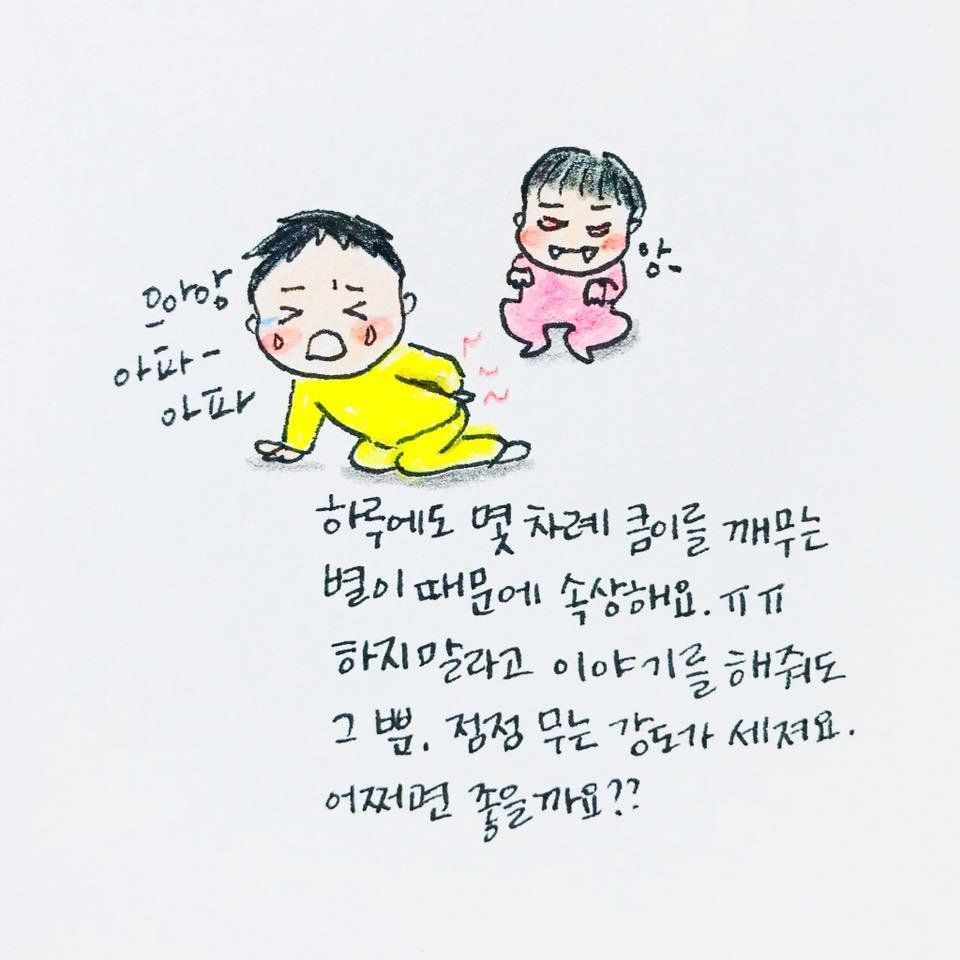 으아앙
아파-
아파
앙-
하루에도 몇 차례 큼이를 깨무는
별이 때문에 속상해요. ㅠㅠ
하지말라고 이야기를 해줘도
그 뿐. 점점 무는 강도가 세져요.
어쩌면 좋을까요??